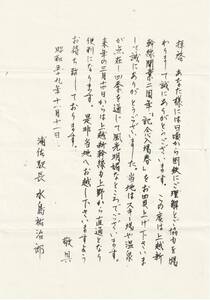 拝啓 あなた様には日頃から国鉄にご理解とご協力を賜
わりまして誠にありがとうございます。この度は上越新
幹線開業二周年「記念入場券」をお買上げいただきま
して誠にありがとうございました。当地はスキー場や温泉
が点在し四季を通じて風光明媚なところでございます。
来年の三月十四日からは上越新幹線も上野から直通となり
便利になります。是非当地へお越し下さいますよう
お待ち申しております。
敬具
昭和五十九年十一月十一日
浦佐駅長 水島祐治郎